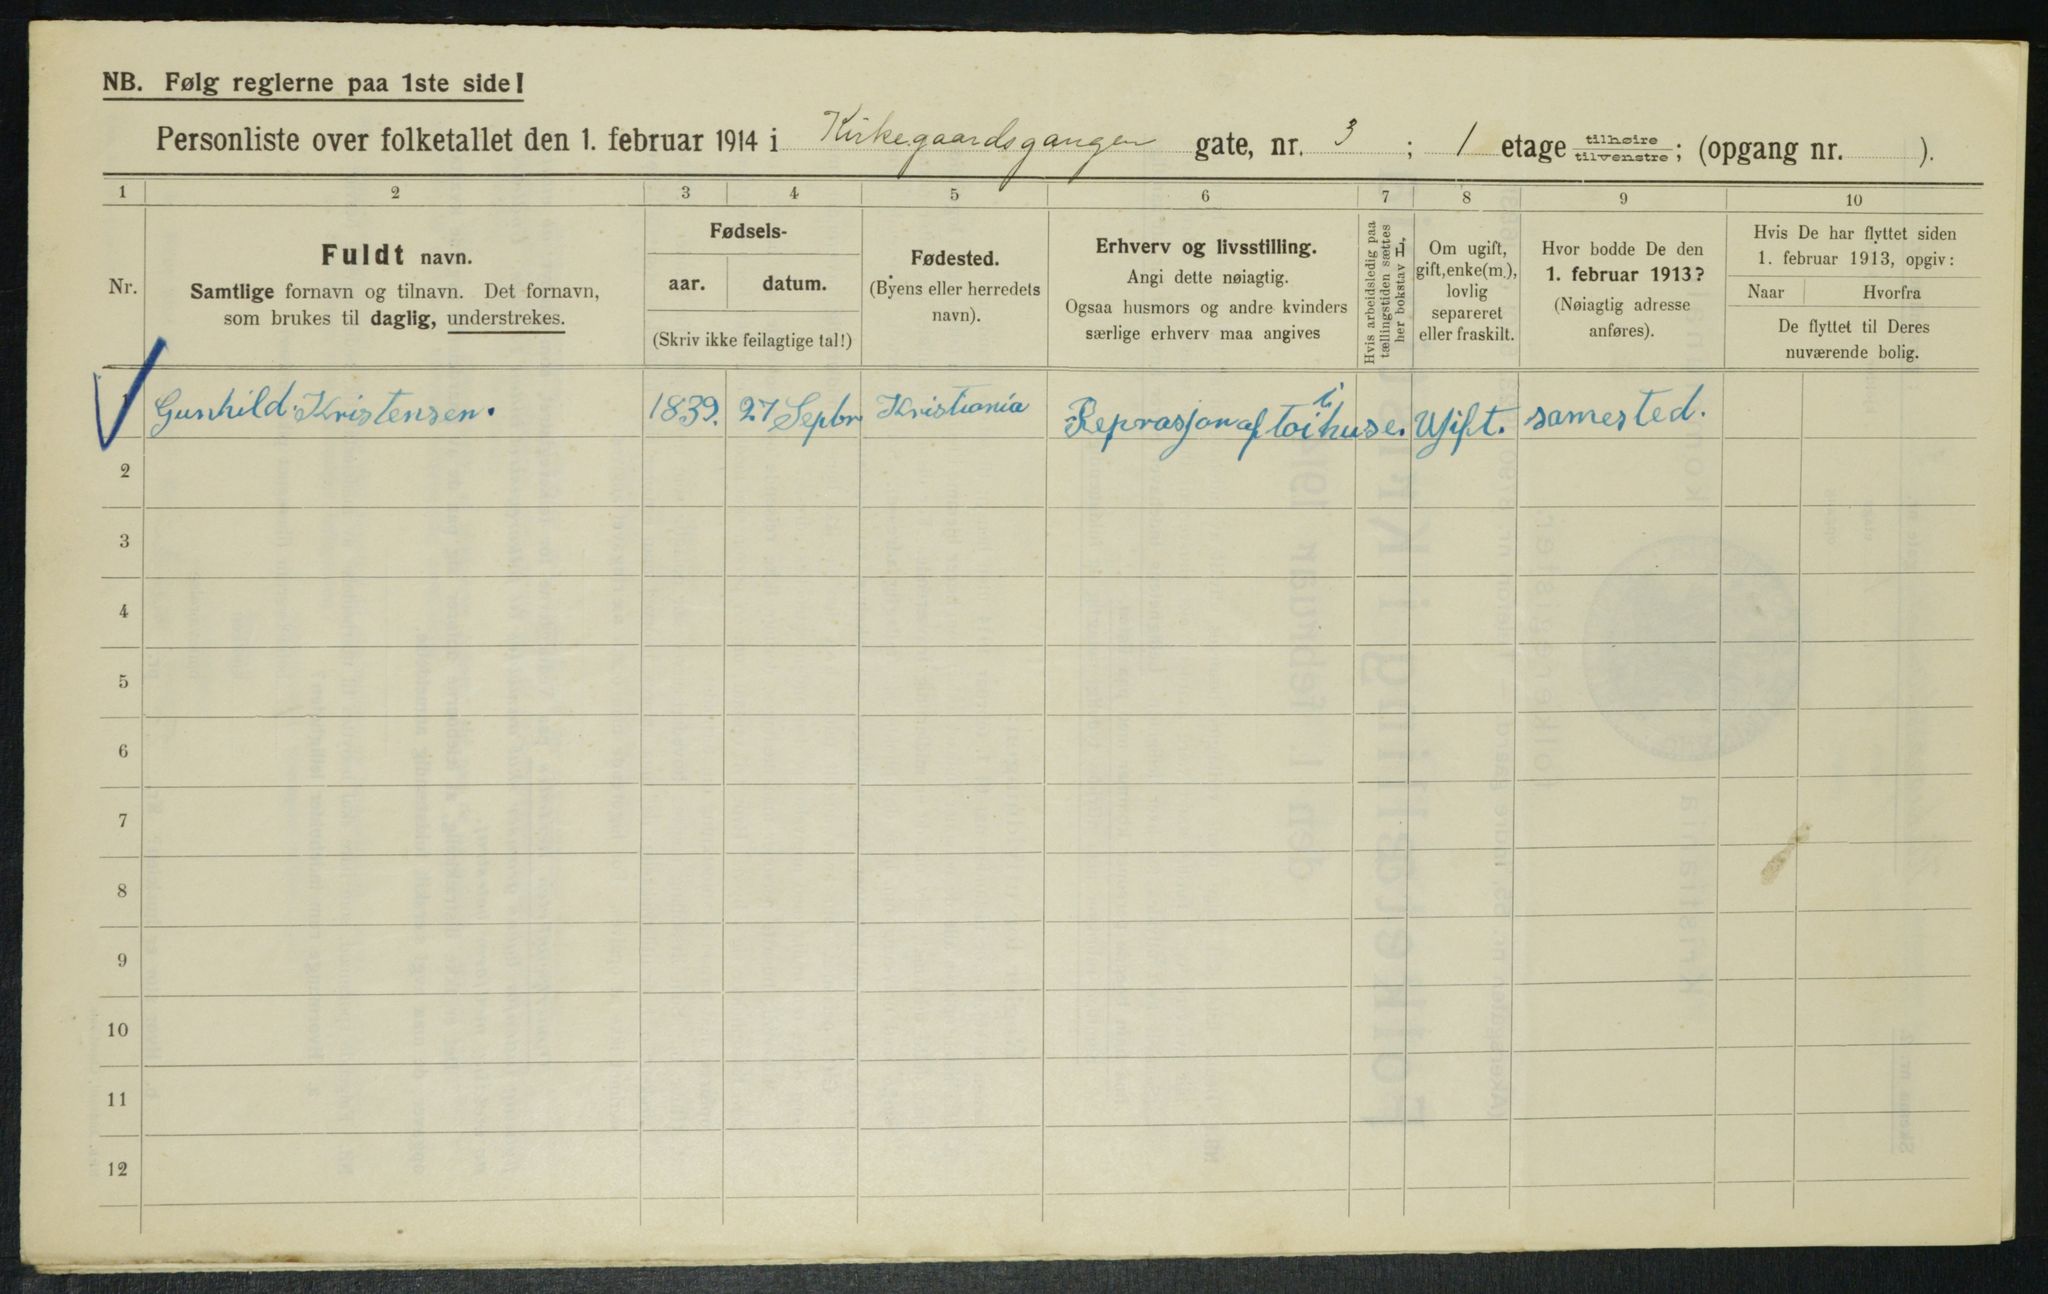 NB. Følg reglerne paa 1ste side!
Personliste over folketallet den 1. februar 1914 i Kirkegaardsgangen gate, nr. 3; 1 etage tilhøire / tilvenstre; (opgang nr. ).
1 2 3 4 5 6 7 8 9 10
Nr.
Fuldt navn.
Samtlige fornavn og tilnavn. Det fornavn,
som brukes til daglig, understrekes.
Fødsels-
aar. datum.
(Skriv ikke feilagtige tal!)
Fødested.
(Byens eller herredets
navn).
Erhverv og livsstilling.
Angi dette nøiagtig.
Ogsaa husmors og andre kvinders
særlige erhverv maa angives
Hvis arbeidsledig paa
tællingstiden sættes
her bokstav L.
Om ugift,
gift, enke(m.),
lovlig
separeret
eller fraskilt.
Hvor bodde De den
1. februar 1913?
(Nøiagtig adresse
anføres).
Hvis De har flyttet siden
1. februar 1913, opgiv:
Naar Hvorfra
De flyttet til Deres
nuværende bolig.
Gunhild Kristensen. 1839. 27 Sepbr Kristiania Reprasjon af toi i huse. Ugift. samested.
2
3
4
5
6
7
8
9
10
11
12